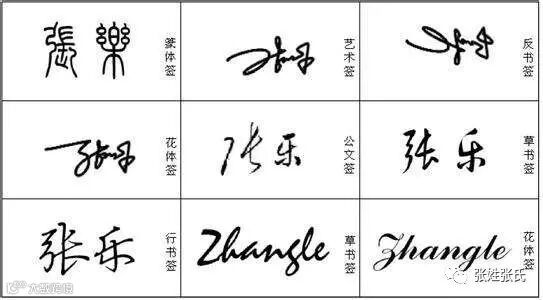 張樂
篆体签
艺术签
反书签
花体签
张乐
公文签
张乐
草书签
张乐
行书签
Zhangle
草书签
Zhangle
花体签
大绝跨境
张姓张氏